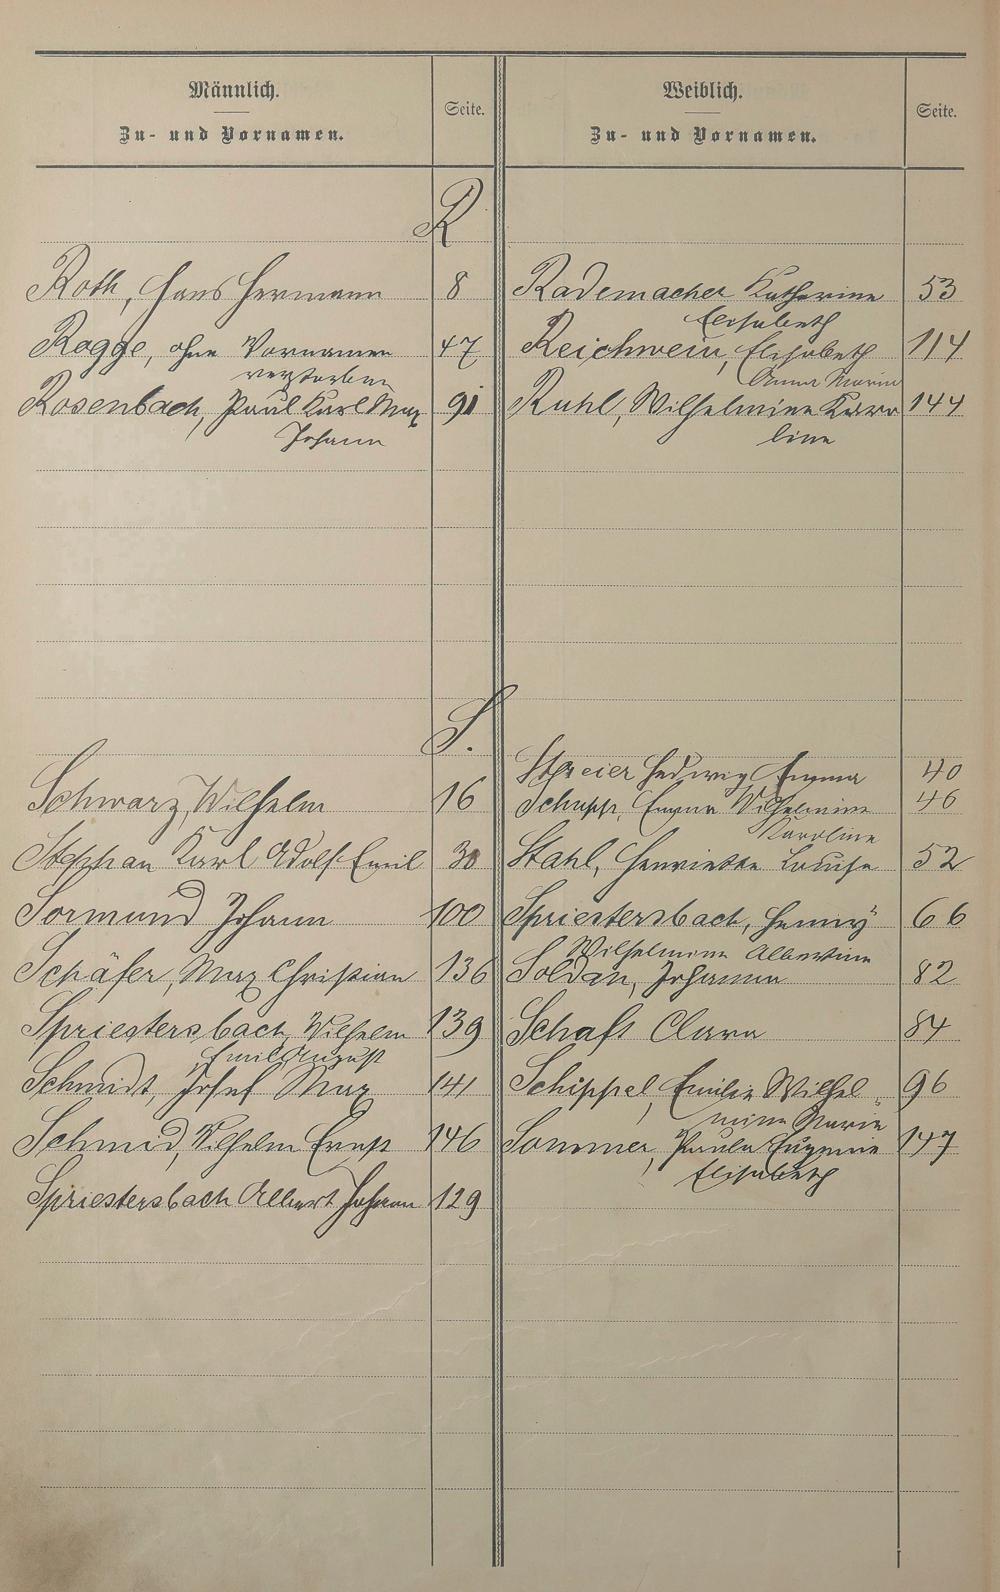 Männlich.
Zu- und Vornamen.
Seite.
Weiblich.
Zu- und Vornamen.
Seite.
R
Roth, Hans Hermann 8
Rogge, ohne Vornamen 47
verstorben
Rosenbach, Paul Karl Max 91
Johann
Rademacher Katharine 53
Elisabeth
Reichwein, Elisabeth 114
Anna Maria
Ruhl, Wilhelmine Karo 144
line
S.
Schwarz, Wilhelm 16
Stephan Karl Adolf Emil 30
Sormund Johann 100
Schäfer, Max Christian 136
Spriestersbach Wilhelm 139
Emil August
Schmidt, Josef Max 141
Schmid, Wilhelm Ernst 146
Spriestersbach Albert Johann 129
Hedwig Emma 40
Schupp, Emma Wilhelmine 46
Karoline
Stahl, Henriette Louise 52
Spriestersbach, Henny 66
Wilhelmine Albertine
Soldan, Johanna 82
Schaft Clara 84
Schippel, Emilie Wilhel 96
mine Marie
Sommer, Paula Eugenie 147
Elisabeth